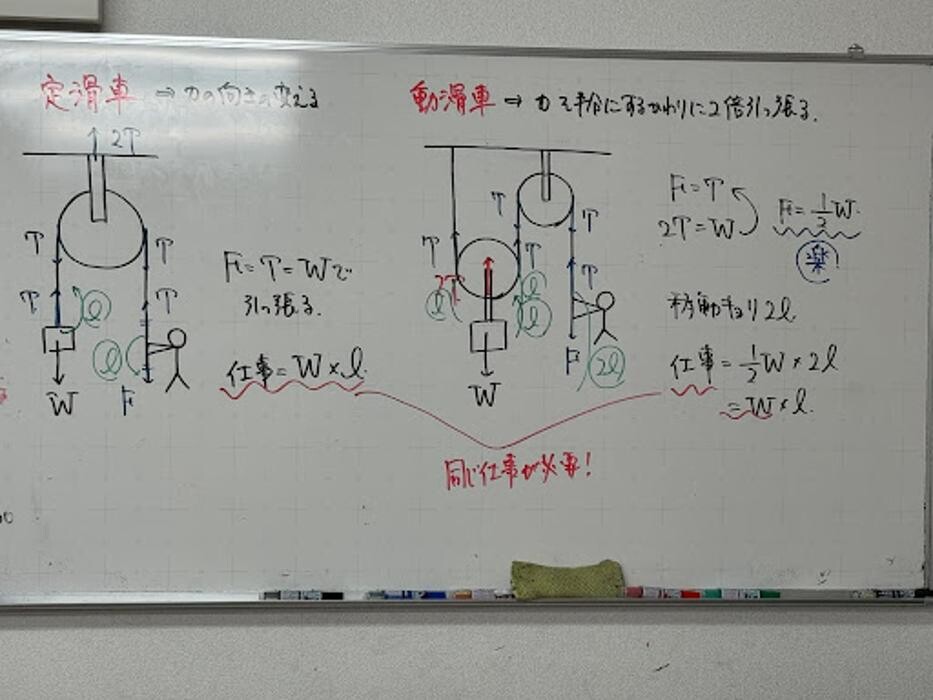 定滑車 ⇒ 力の向きの変える
2T
T
T
T
T
l
l
W
F
F = T = Wで
引っ張る.
仕事 = W × l.
動滑車 ⇒ 力を半分にするかわりに2倍引っ張る.
T
T
T
T
T
2T
l
l
l
2l
W
F
F = T
2T = W
F = 1/2 W.
楽!
移動キョリ 2l
仕事 = 1/2 W × 2l
= W × l.
同じ仕事が必要!